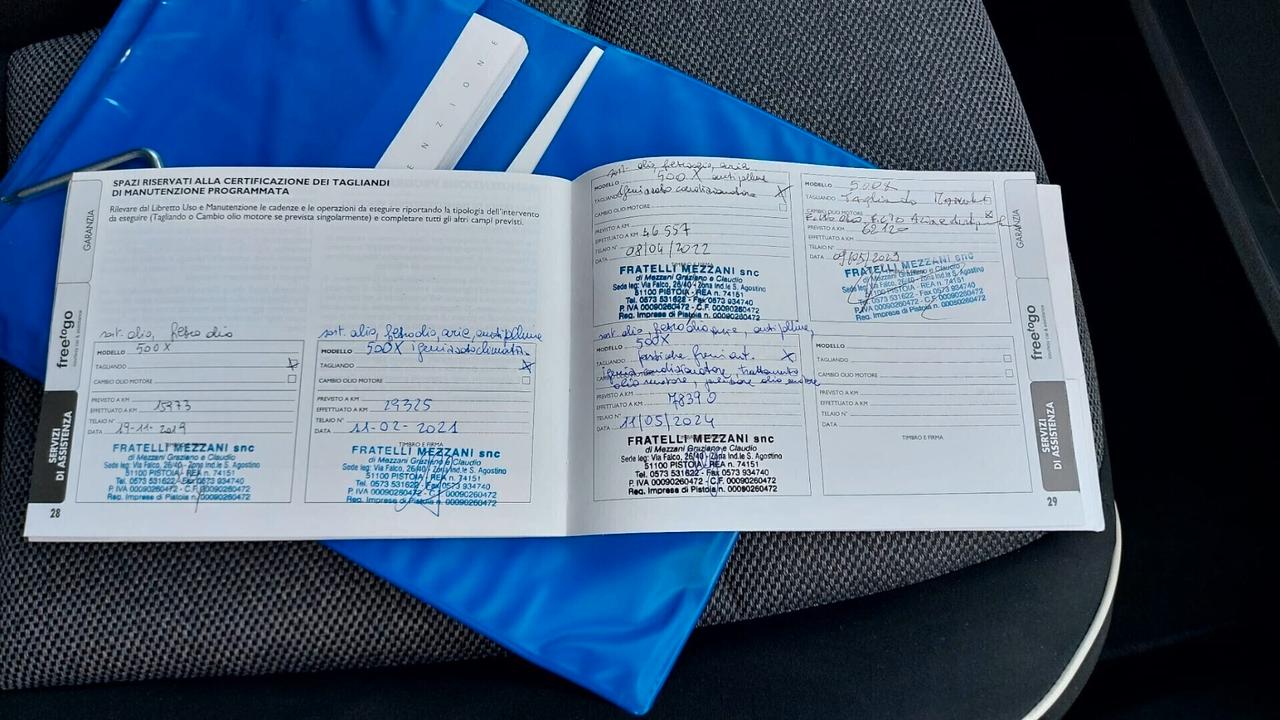 E N Z I O N E
SPAZI RISERVATI ALLA CERTIFICAZIONE DEI TAGLIANDI
DI MANUTENZIONE PROGRAMMATA
Rilevare dal Libretto Uso e Manutenzione le cadenze e le operazioni da eseguire riportando la tipologia dell'intervento
da eseguire (Tagliando o Cambio olio motore se prevista singolarmente) e completare tutti gli altri campi previsti.
GARANZIA
freetogo
SERVIZI
DI ASSISTENZA
sost. olio, filtro olio
MODELLO 500X
TAGLIANDO X
CAMBIO OLIO MOTORE
PREVISTO A KM
EFFETTUATO A KM 15973
TELAIO N°
DATA 19-11-2019
TIMBRO E FIRMA
FRATELLI MEZZANI snc
di Mezzani Graziano e Claudio
Sede leg: Via Falco, 26/40 - Zona Ind.le S. Agostino
51100 PISTOIA - REA n. 74151
Tel. 0573 531622 - Fax 0573 934740
P. IVA 00090260472 - C.F. 00090260472
Reg. Imprese di Pistoia n. 00090260472
28
sost. olio, filtro olio, aria, antipolline
MODELLO 500X
TAGLIANDO X
CAMBIO OLIO MOTORE
PREVISTO A KM
EFFETTUATO A KM 29325
TELAIO N°
DATA 11-02-2021
TIMBRO E FIRMA
FRATELLI MEZZANI snc
di Mezzani Graziano e Claudio
Sede leg: Via Falco, 26/40 - Zona Ind.le S. Agostino
51100 PISTOIA - REA n. 74151
Tel. 0573 531622 - Fax 0573 934740
P. IVA 00090260472 - C.F. 00090260472
Reg. Imprese di Pistoia n. 00090260472
sost. olio, filtro olio, aria
MODELLO 500X antipolline
TAGLIANDO igenizzato condizionatore X
CAMBIO OLIO MOTORE
PREVISTO A KM
EFFETTUATO A KM 46557
TELAIO N°
DATA 08/04/2022
FRATELLI MEZZANI snc
di Mezzani Graziano e Claudio
Sede leg: Via Falco, 26/40 - Zona Ind.le S. Agostino
51100 PISTOIA - REA n. 74151
Tel. 0573 531622 - Fax 0573 934740
P. IVA 00090260472 - C.F. 00090260472
Reg. Imprese di Pistoia n. 00090260472
MODELLO 500X
TAGLIANDO Tagliando
CAMBIO OLIO MOTORE
PREVISTO A KM
EFFETTUATO A KM
TELAIO N°
DATA 09/05/2023
FRATELLI MEZZANI snc
di Mezzani Graziano e Claudio
Sede leg: Via Falco, 26/40 - Zona Ind.le S. Agostino
51100 PISTOIA - REA n. 74151
Tel. 0573 531622 - Fax 0573 934740
P. IVA 00090260472 - C.F. 00090260472
Reg. Imprese di Pistoia n. 00090260472
sost. olio, filtro olio, aria, antipolline,
MODELLO 500X
TAGLIANDO pastiche freni ant. X
igenizza condizionatore, trattamento
olio motore, olio motore
PREVISTO A KM
EFFETTUATO A KM 78390
TELAIO N°
DATA 11/05/2024
FRATELLI MEZZANI snc
di Mezzani Graziano e Claudio
Sede leg: Via Falco, 26/40 - Zona Ind.le S. Agostino
51100 PISTOIA - REA n. 74151
Tel. 0573 531622 - Fax 0573 934740
P. IVA 00090260472 - C.F. 00090260472
Reg. Imprese di Pistoia n. 00090260472
MODELLO
TAGLIANDO
CAMBIO OLIO MOTORE
PREVISTO A KM
EFFETTUATO A KM
TELAIO N°
DATA
TIMBRO E FIRMA
GARANZIA
freetogo
SERVIZI
DI ASSISTENZA
29